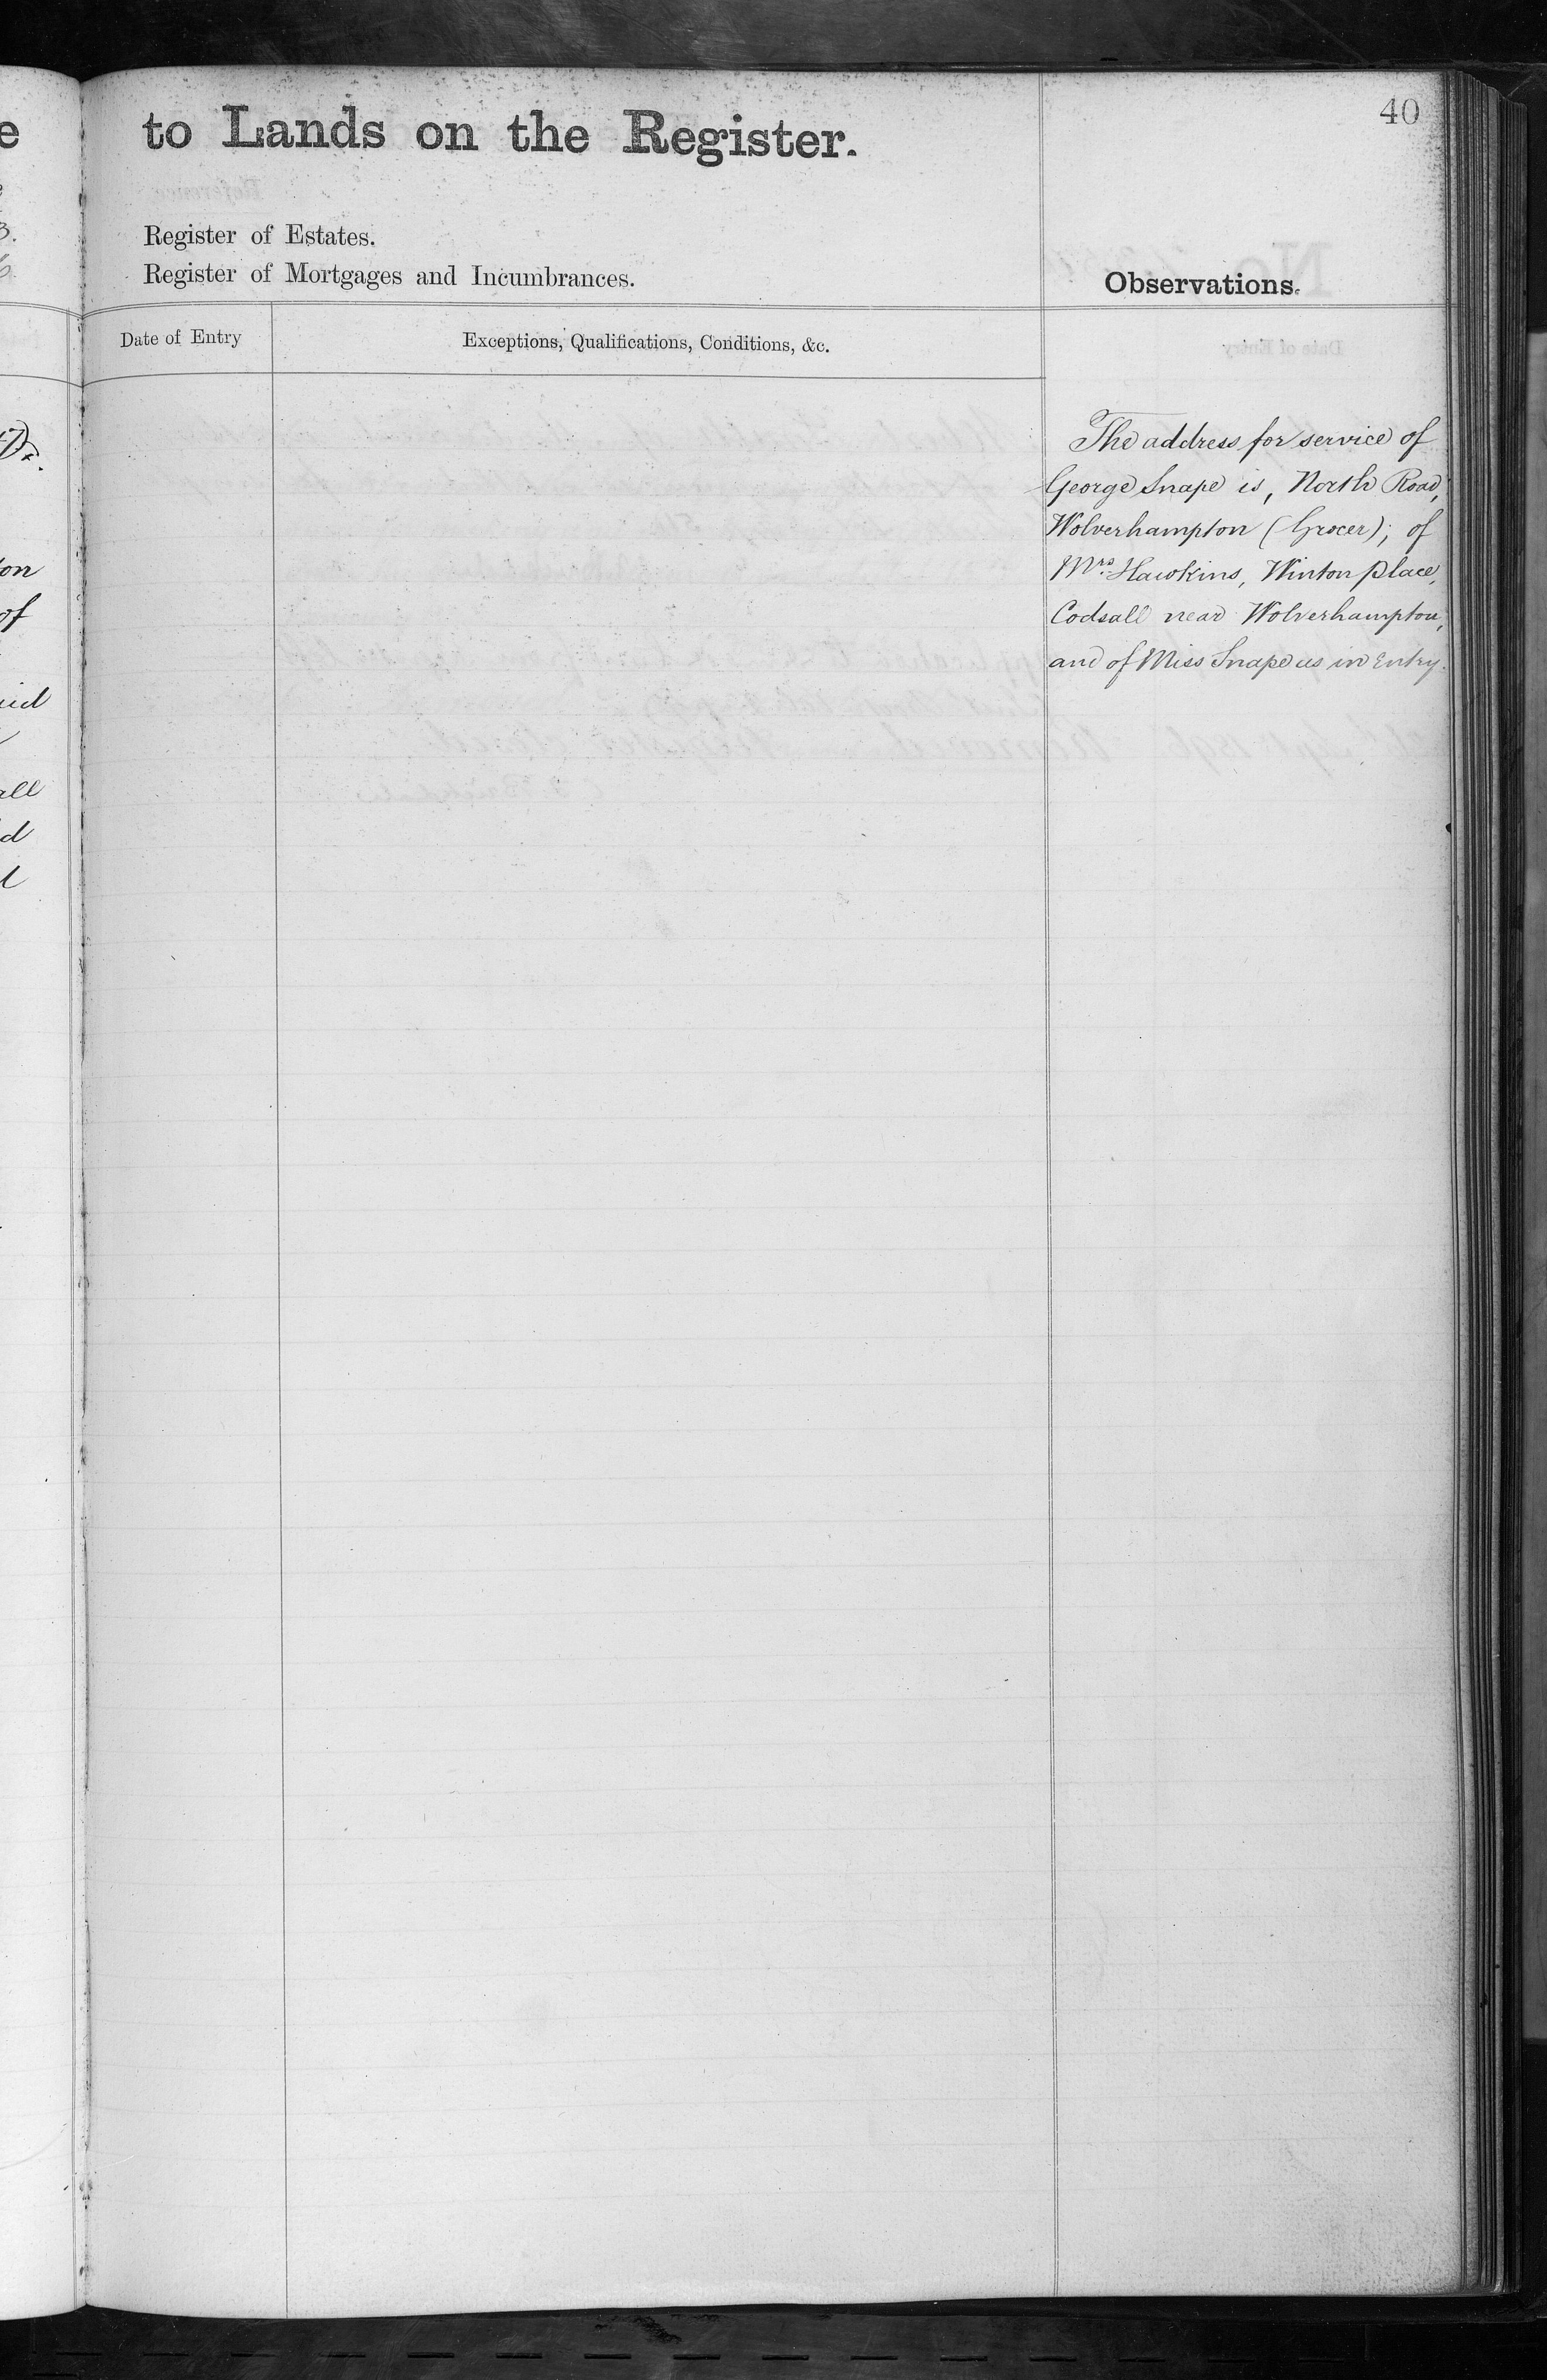 40
to Lands on the Register.
Register of Estates.
Register of Mortgages and Incumbrances.
Observations.
Date of Entry
Exceptions, Qualifications, Conditions, &c.
The address for service of
George Snape is, North Road,
Wolverhampton (Grocer); of
Mrs. Hawkins, Winton place,
Codsall near Wolverhampton,
and of Miss Snape as in Entry.
on
of
all
d